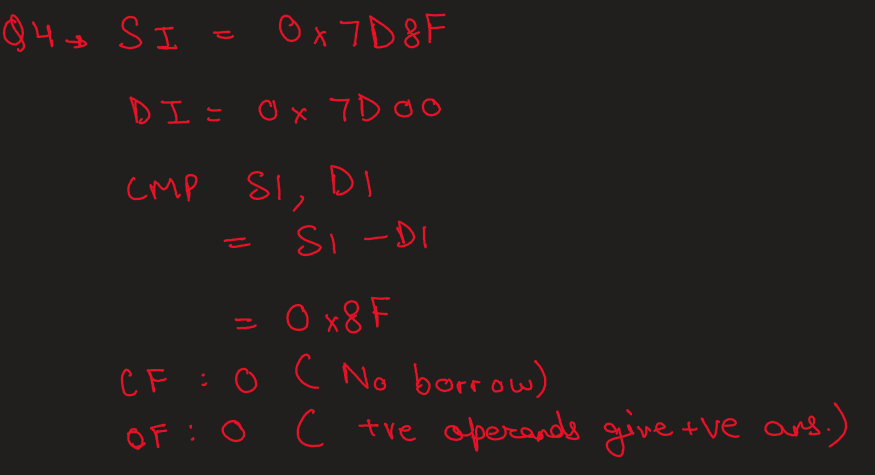 Q4→ SI = 0x7D8F
DI = 0x7D00
CMP SI, DI
= SI - DI
= 0x8F
CF : 0 ( No borrow)
OF : 0 ( +ve operands give +ve ans.)